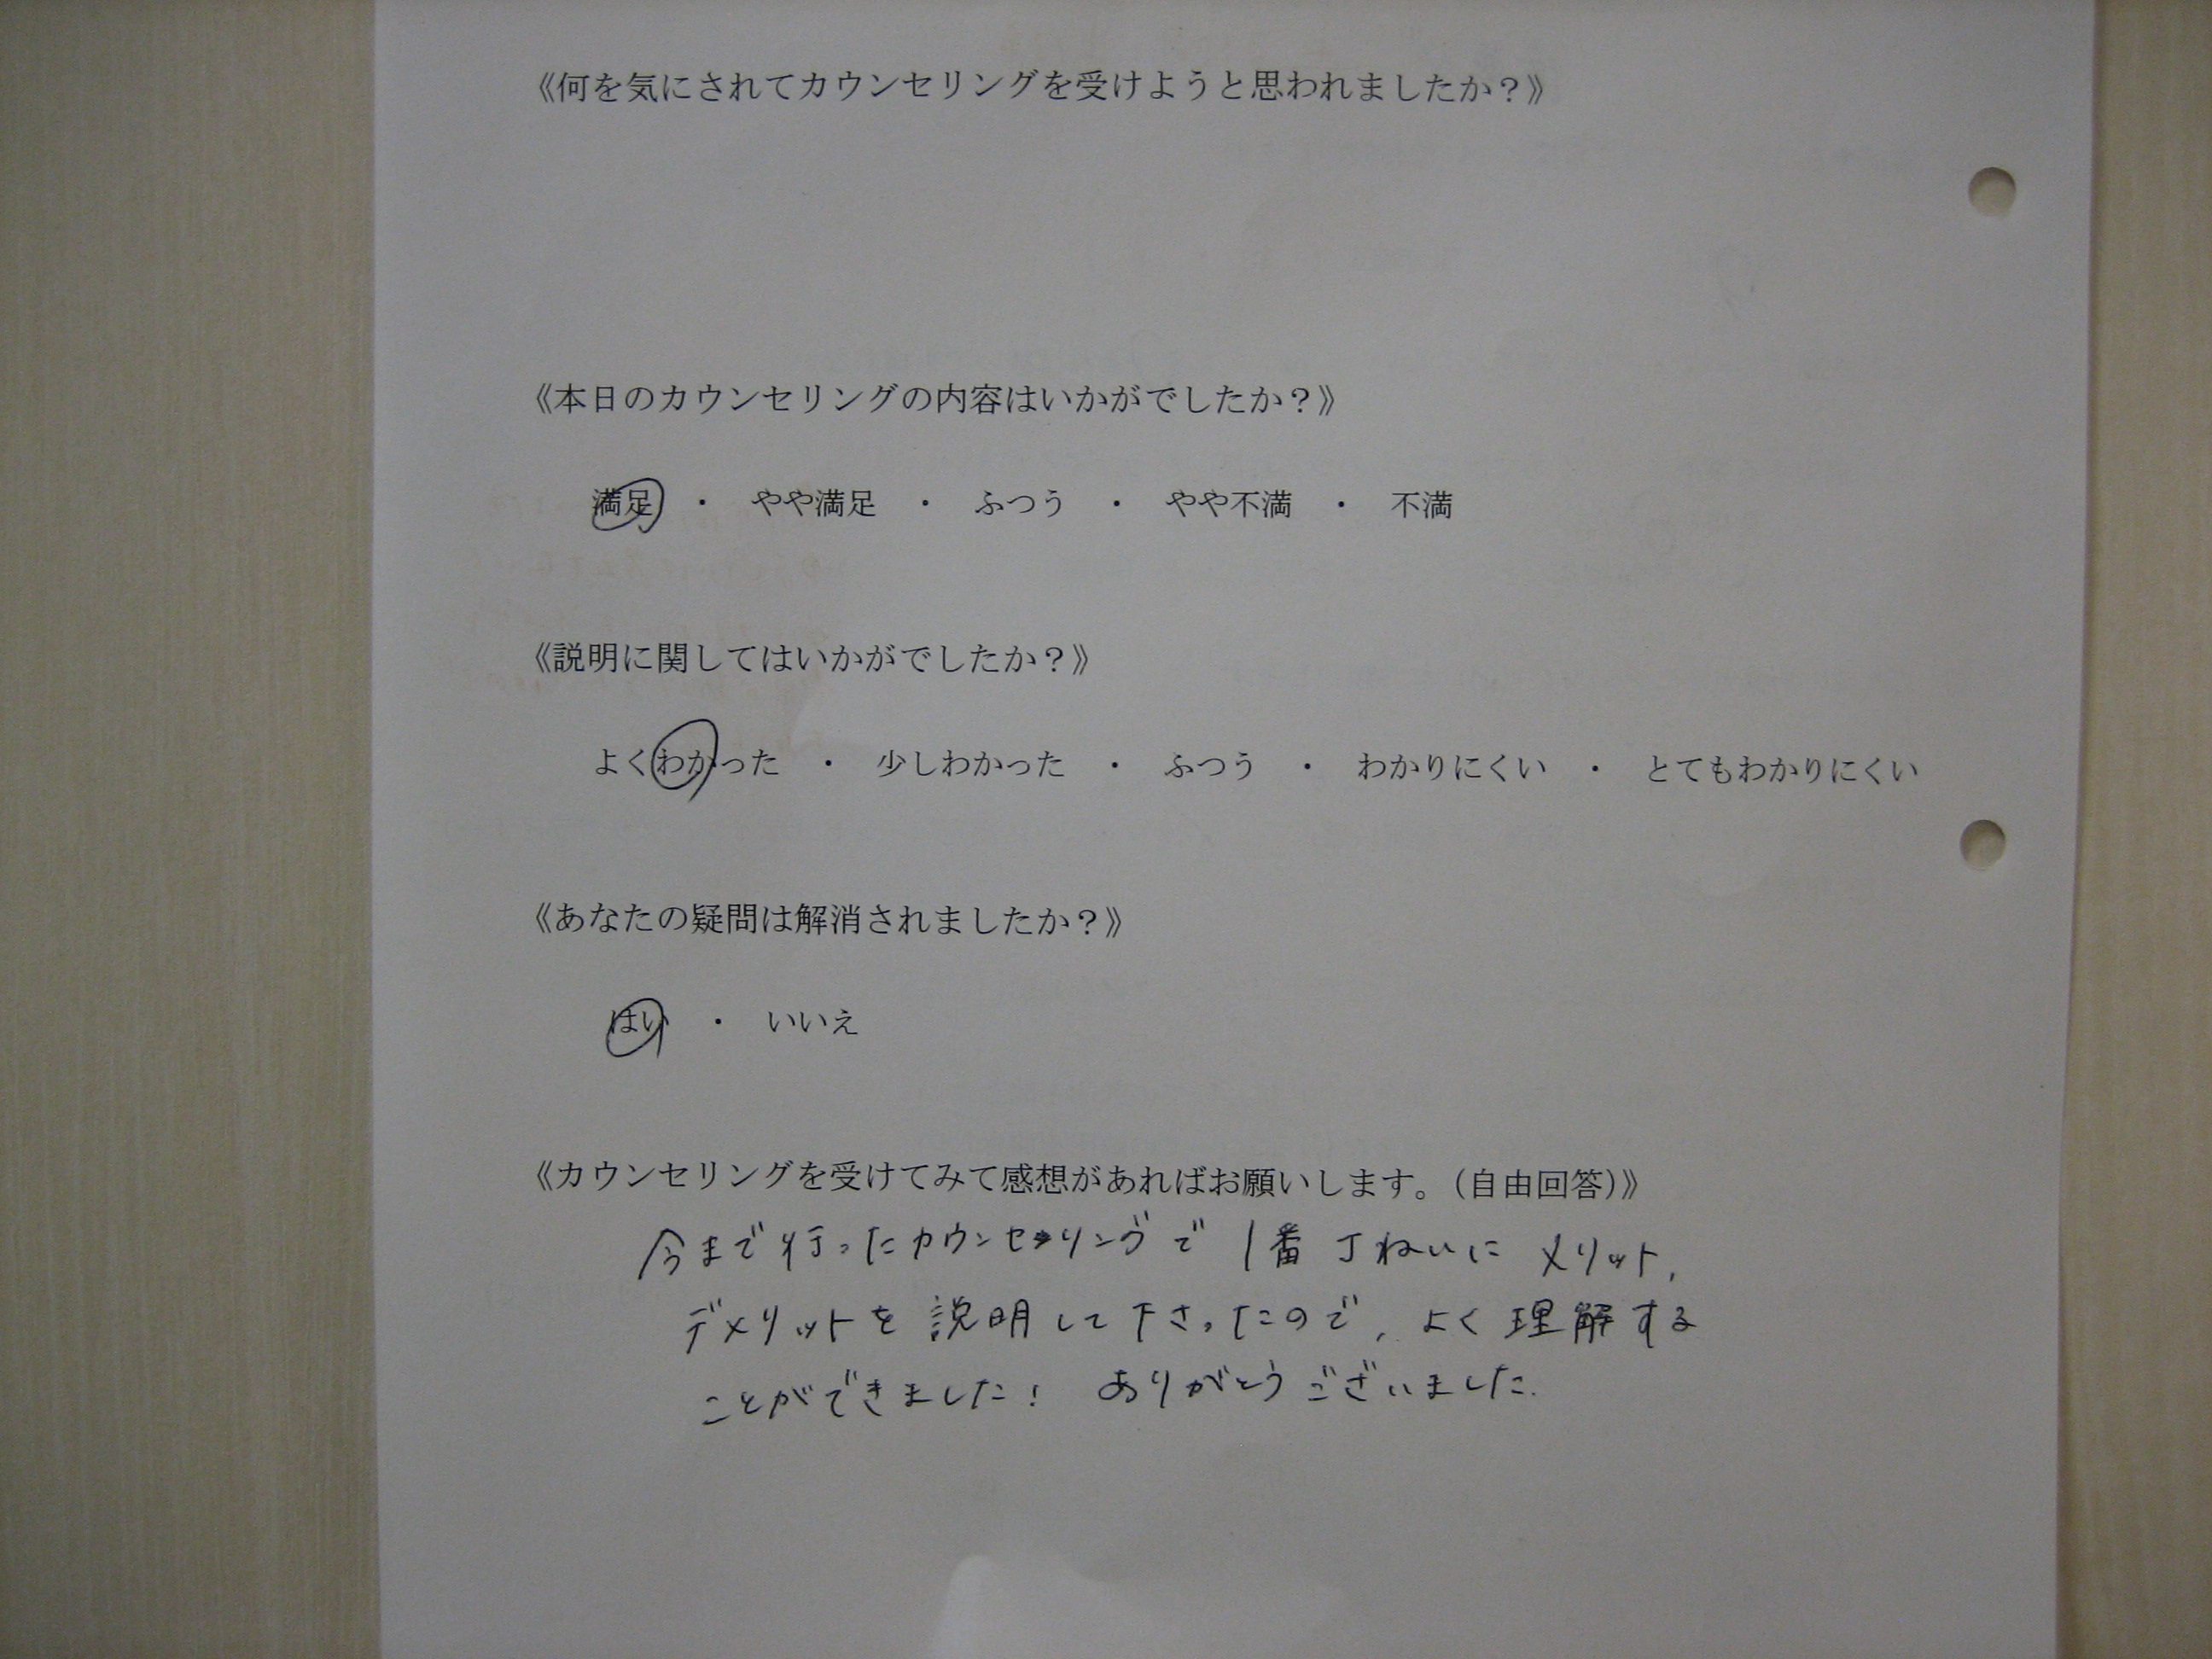 《何を気にされてカウンセリングを受けようと思われましたか？》
《本日のカウンセリングの内容はいかがでしたか？》
満足 ・ やや満足 ・ ふつう ・ やや不満 ・ 不満
《説明に関してはいかがでしたか？》
よくわかった ・ 少しわかった ・ ふつう ・ わかりにくい ・ とてもわかりにくい
《あなたの疑問は解消されましたか？》
はい ・ いいえ
《カウンセリングを受けてみて感想があればお願いします。（自由回答）》
今まで行ったカウンセリングで1番丁ねいにメリット、
デメリットを説明して下さったので、よく理解する
ことができました！ ありがとうございました.